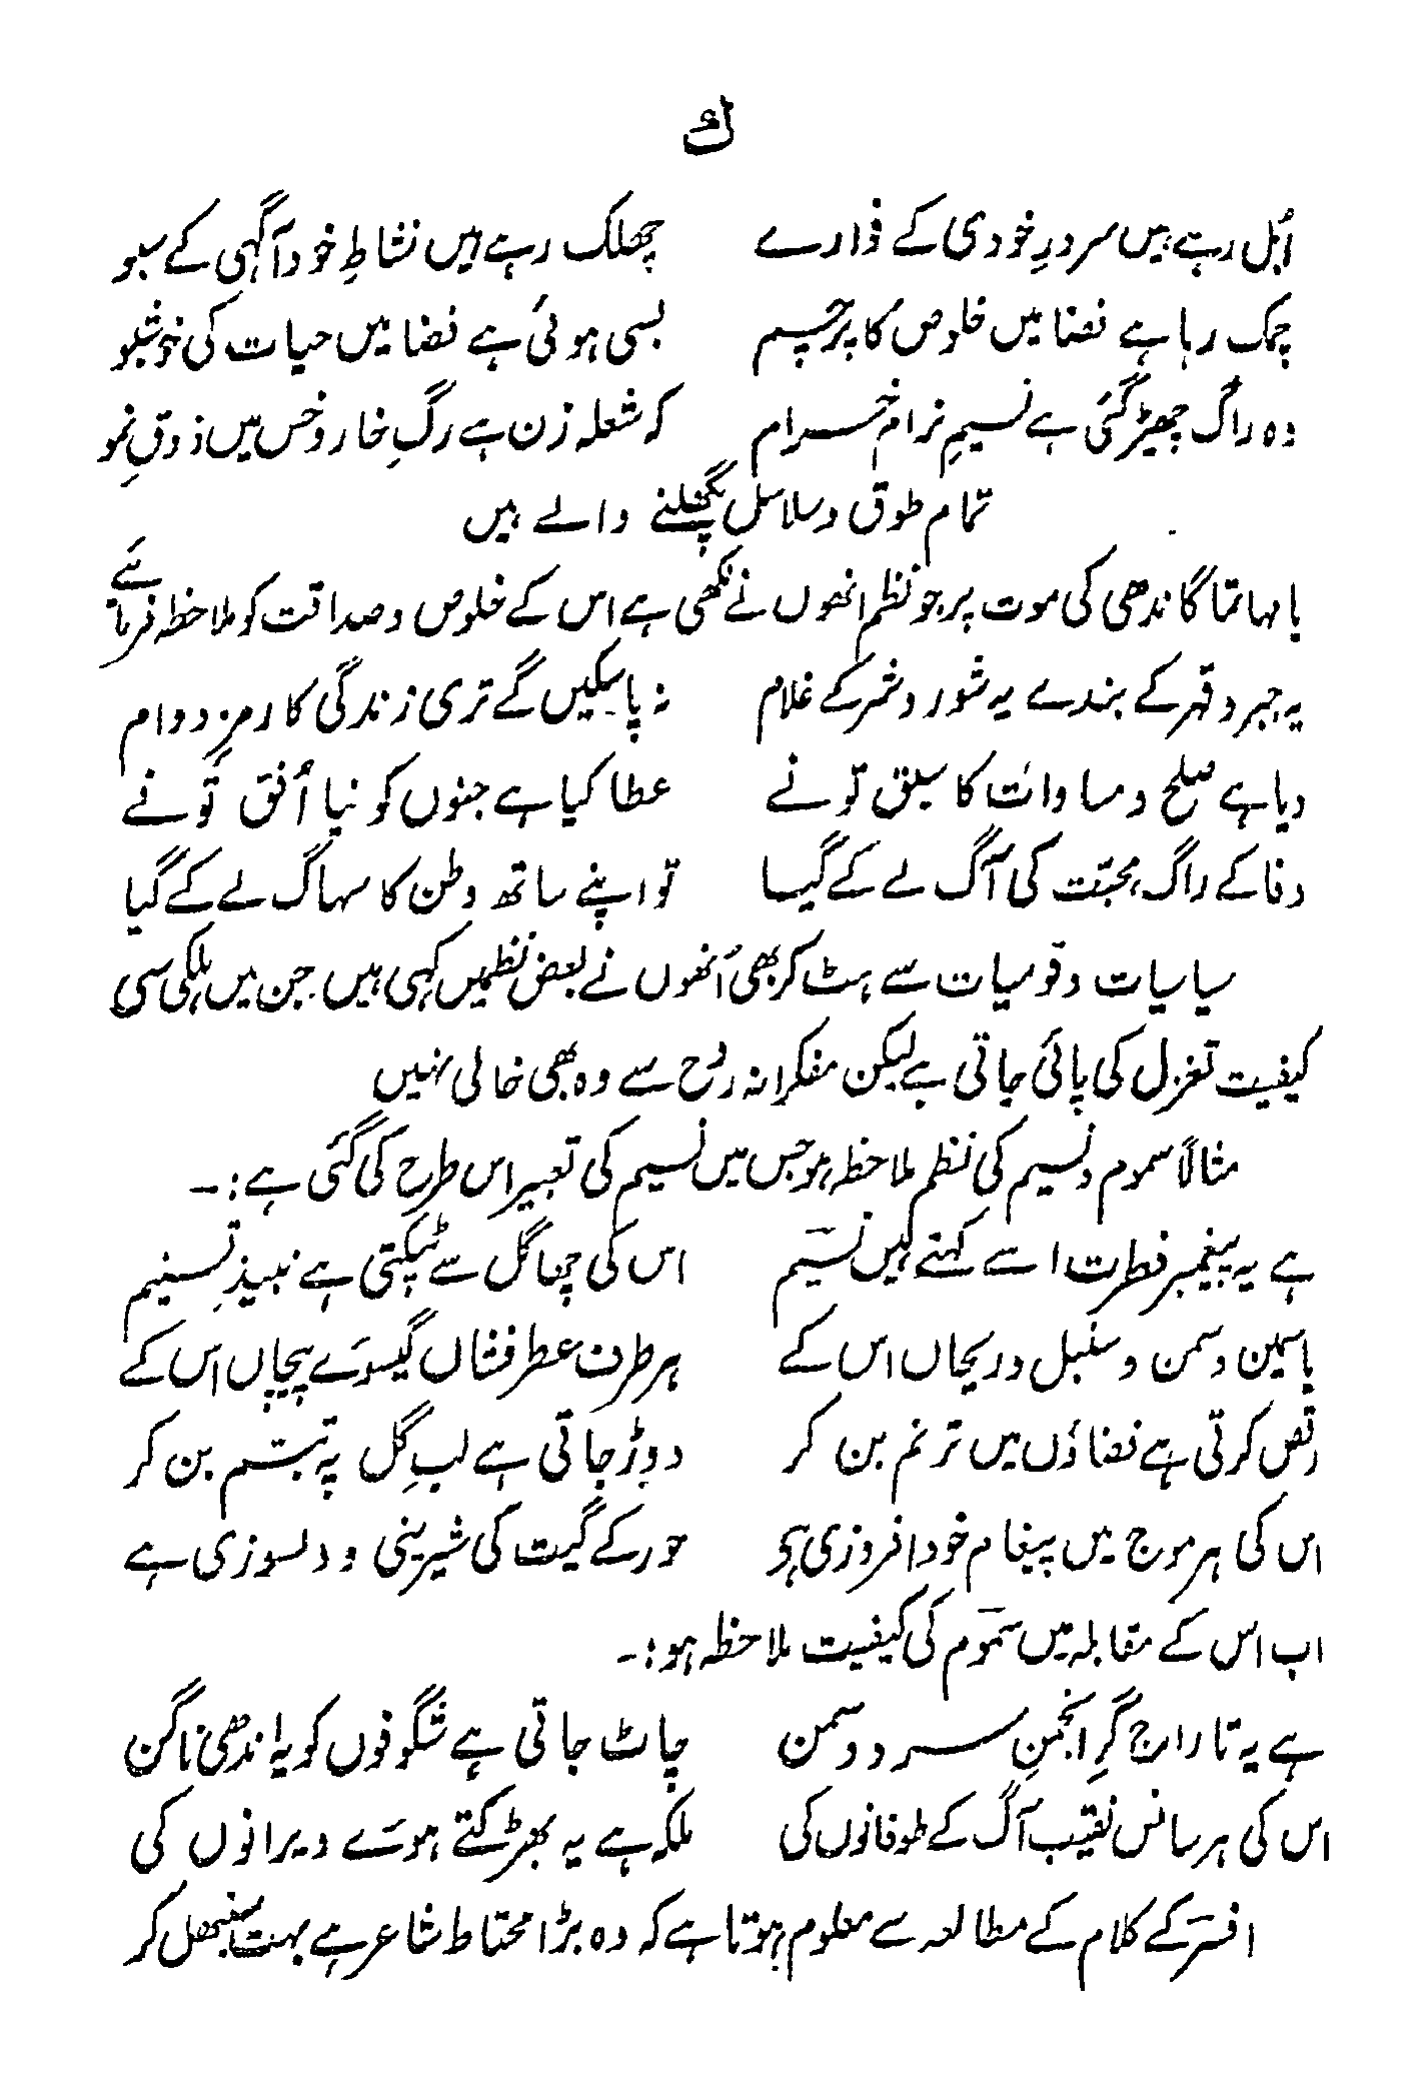 ك
اُبل رہے ہیں سرورِ خودی کے فوارے چھلک رہے ہیں نشاطِ خود آگہی کے سبو
چمک رہا ہے فضا میں خلوص کا پرچم بسی ہوئی ہے فضا میں حیات کی خوشبو
وہ راگ چھیڑ گئی ہے نسیمِ نرم خرام کہ شعلہ زن ہے رگِ خار و خس میں ذوقِ نمو
تمام طوق و سلاسل پگھلنے والے ہیں
یا مہاتما گاندھی کی موت پر جو نظم انھوں نے لکھی ہے اس کے خلوص و صداقت کو ملاحظہ فرمائے
یہ جبر و قہر کے بندے یہ شور و شر کے غلام نہ پا سکیں گے تری زندگی کا رمزِ دوام
دیا ہے صلح و مساوات کا سبق تو نے عطا کیا ہے جنوں کو نیا اُفق تُو نے
وفا کے راگ، محبّت کی آگ لے کے گیا تو اپنے ساتھ وطن کا سہاگ لے کے گیا
سیاسیات و قومیات سے ہٹ کر بھی اُنھوں نے بعض نظمیں کہی ہیں جن میں ہلکی سی
کیفیت تغزل کی پائی جاتی ہے لیکن مفکرانہ روح سے وہ بھی خالی نہیں
مثالاً سموم و نسیم کی نظم ملاحظہ ہو جس میں نسیم کی تعبیر اس طرح کی گئی ہے :۔
ہے یہ پیغمبر فطرت اسے کہتے ہیں نسیم اس کی چھاگل سے ٹپکتی ہے نبیذِ تسنیم
یاسمین و سمن و سنبل و ریحاں اس کے ہر طرف عطر فشاں گیسوئے پیچاں اس کے
رقص کرتی ہے فضاؤں میں ترنم بن کر دوڑ جاتی ہے لبِ گل پہ تبسّم بن کر
اس کی ہر موج میں پیغام خود افروزی ہے حور کے گیت کی شیرینی و دلسوزی ہے
اب اس کے مقابلہ میں سموم کی کیفیت ملاحظہ ہو :۔
ہے یہ تاراج گرِ انجمنِ سرو و سمن چاٹ جاتی ہے شگوفوں کو یہ اندھی ناگن
اس کی ہر سانس نقیب آگ کے طوفانوں کی ملکہ ہے یہ بھڑکتے ہوئے ویرانوں کی
افسر کے کلام کے مطالعہ سے معلوم ہوتا ہے کہ وہ بڑا محتاط شاعر ہے بہت سنبھل کر